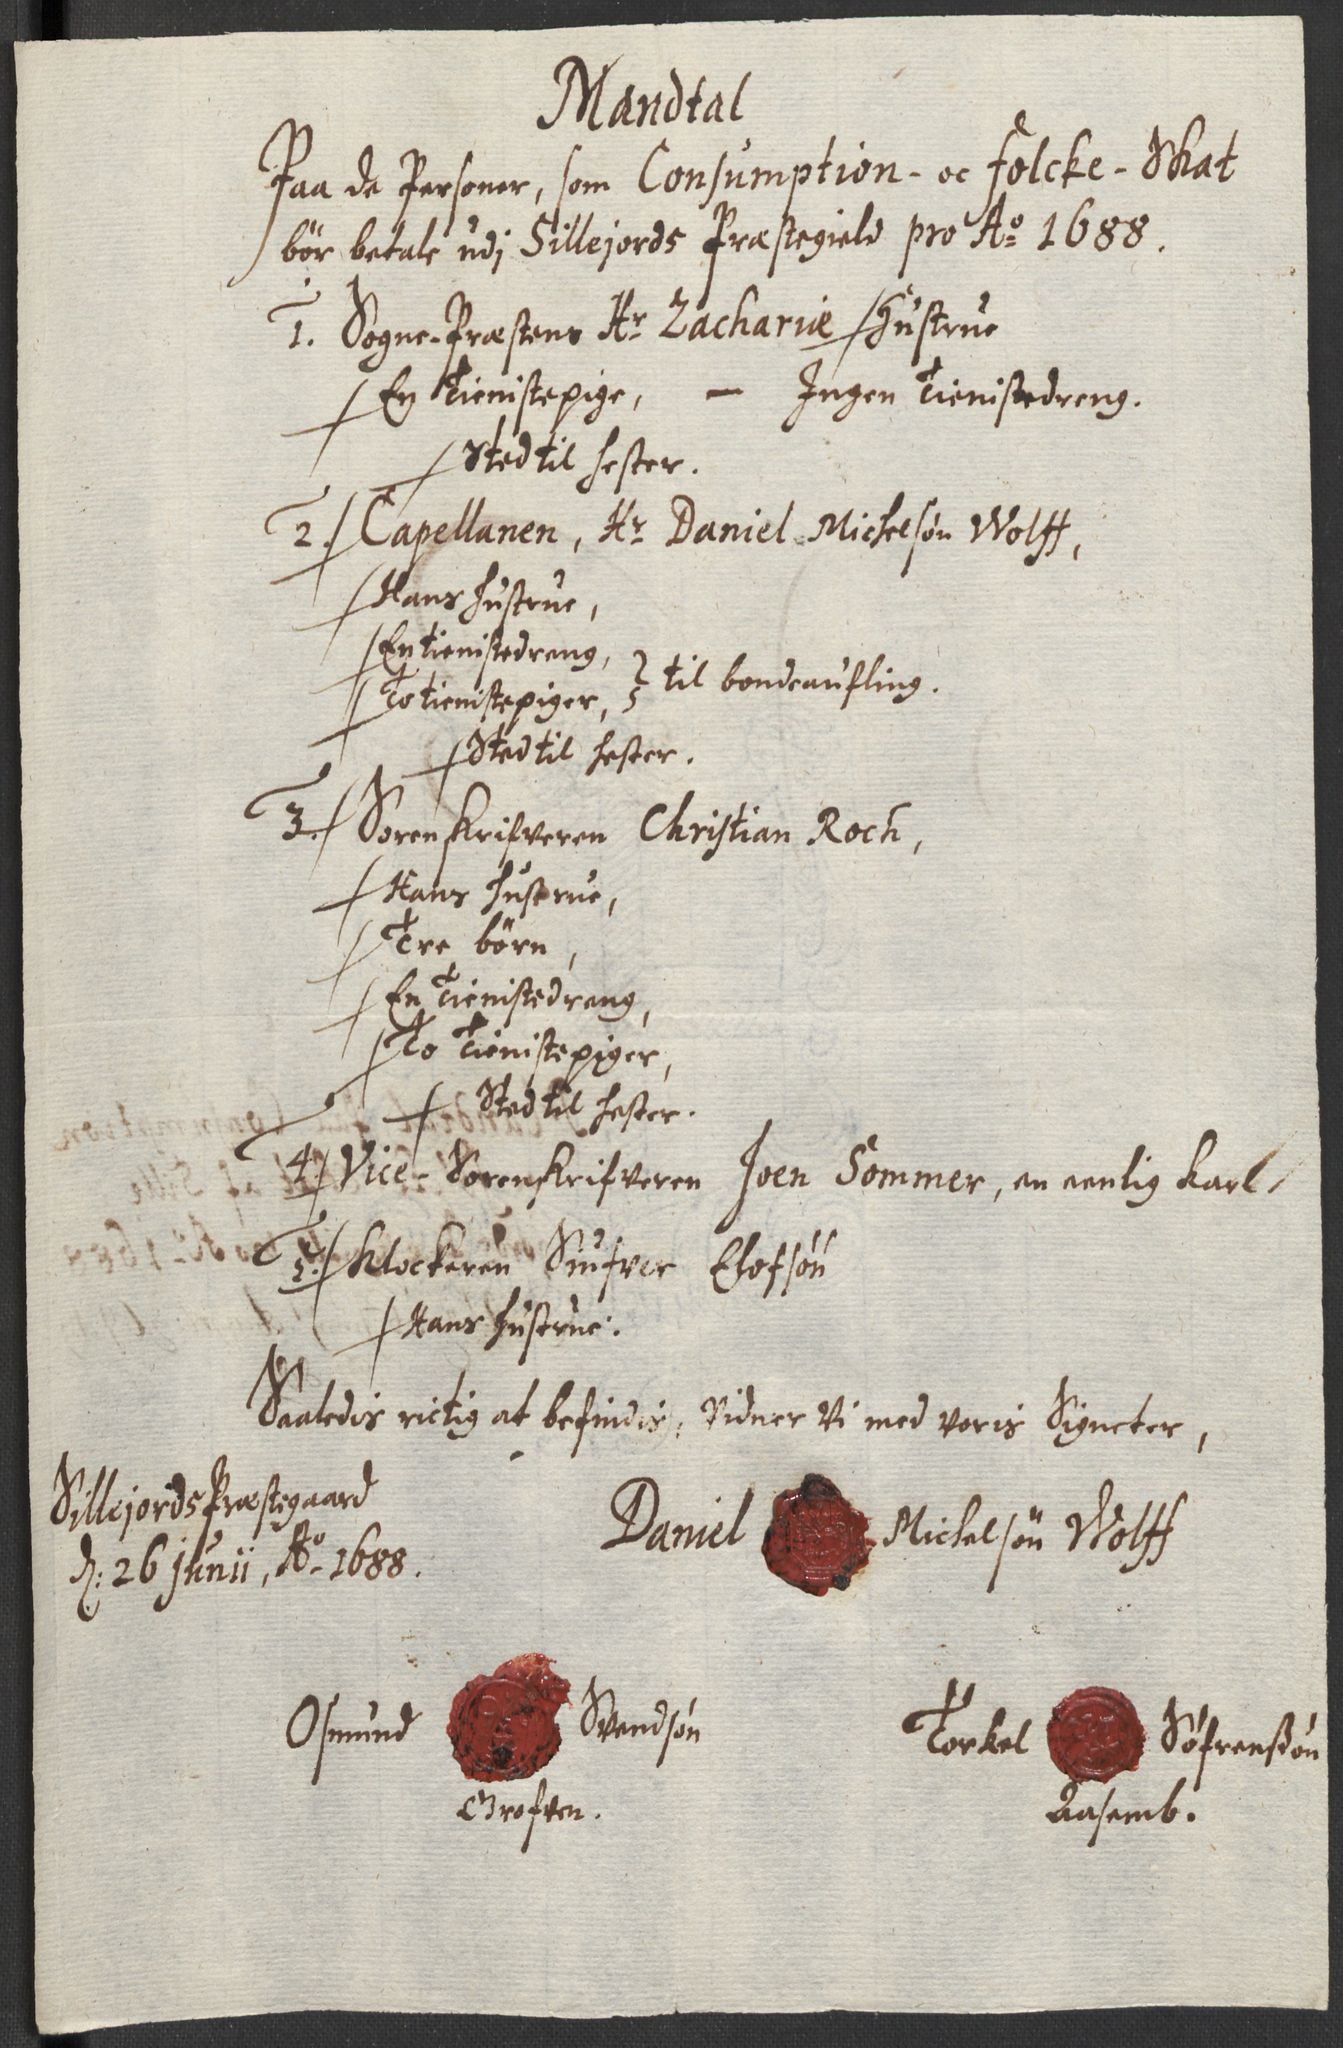 Mandtal
Paa de Personer, som Consumption- oc Folcke-Skat
bör betale udj Sillejords Præstegield pro Ao 1688.
1. Sogne-Præstens Hr Zachariæ Hustrue
En Tienistepige, — Ingen Tienistedreng.
Sted til Hester.
2. Capellanen, Hr Daniel Michelsøn Wolff,
Hans Hustrue,
En tienistedreng,
To tienistepiger, til bondeaufling.
Sted til Hester.
3. Sorenskrifveren Christian Roch,
Hans Hustrue,
Tre börn,
En Tienistedreng,
To Tienistepiger,
Sted til Hester.
4. Vice-Sorenskrifveren Joen Sommer, en eenlig Karl
5. Klockeren Siufver Elofsøn
Hans Hustrue.
Saaledis rictig at befindis, Vidner Vi med voris Signeter,
Sillejords Præstegaard
d: 26 Junii, Ao 1688.
Daniel Michelsøn Wolff
Osmund Svendsøn
Grofven.
Torkel Söfrensøn
Aasemb.